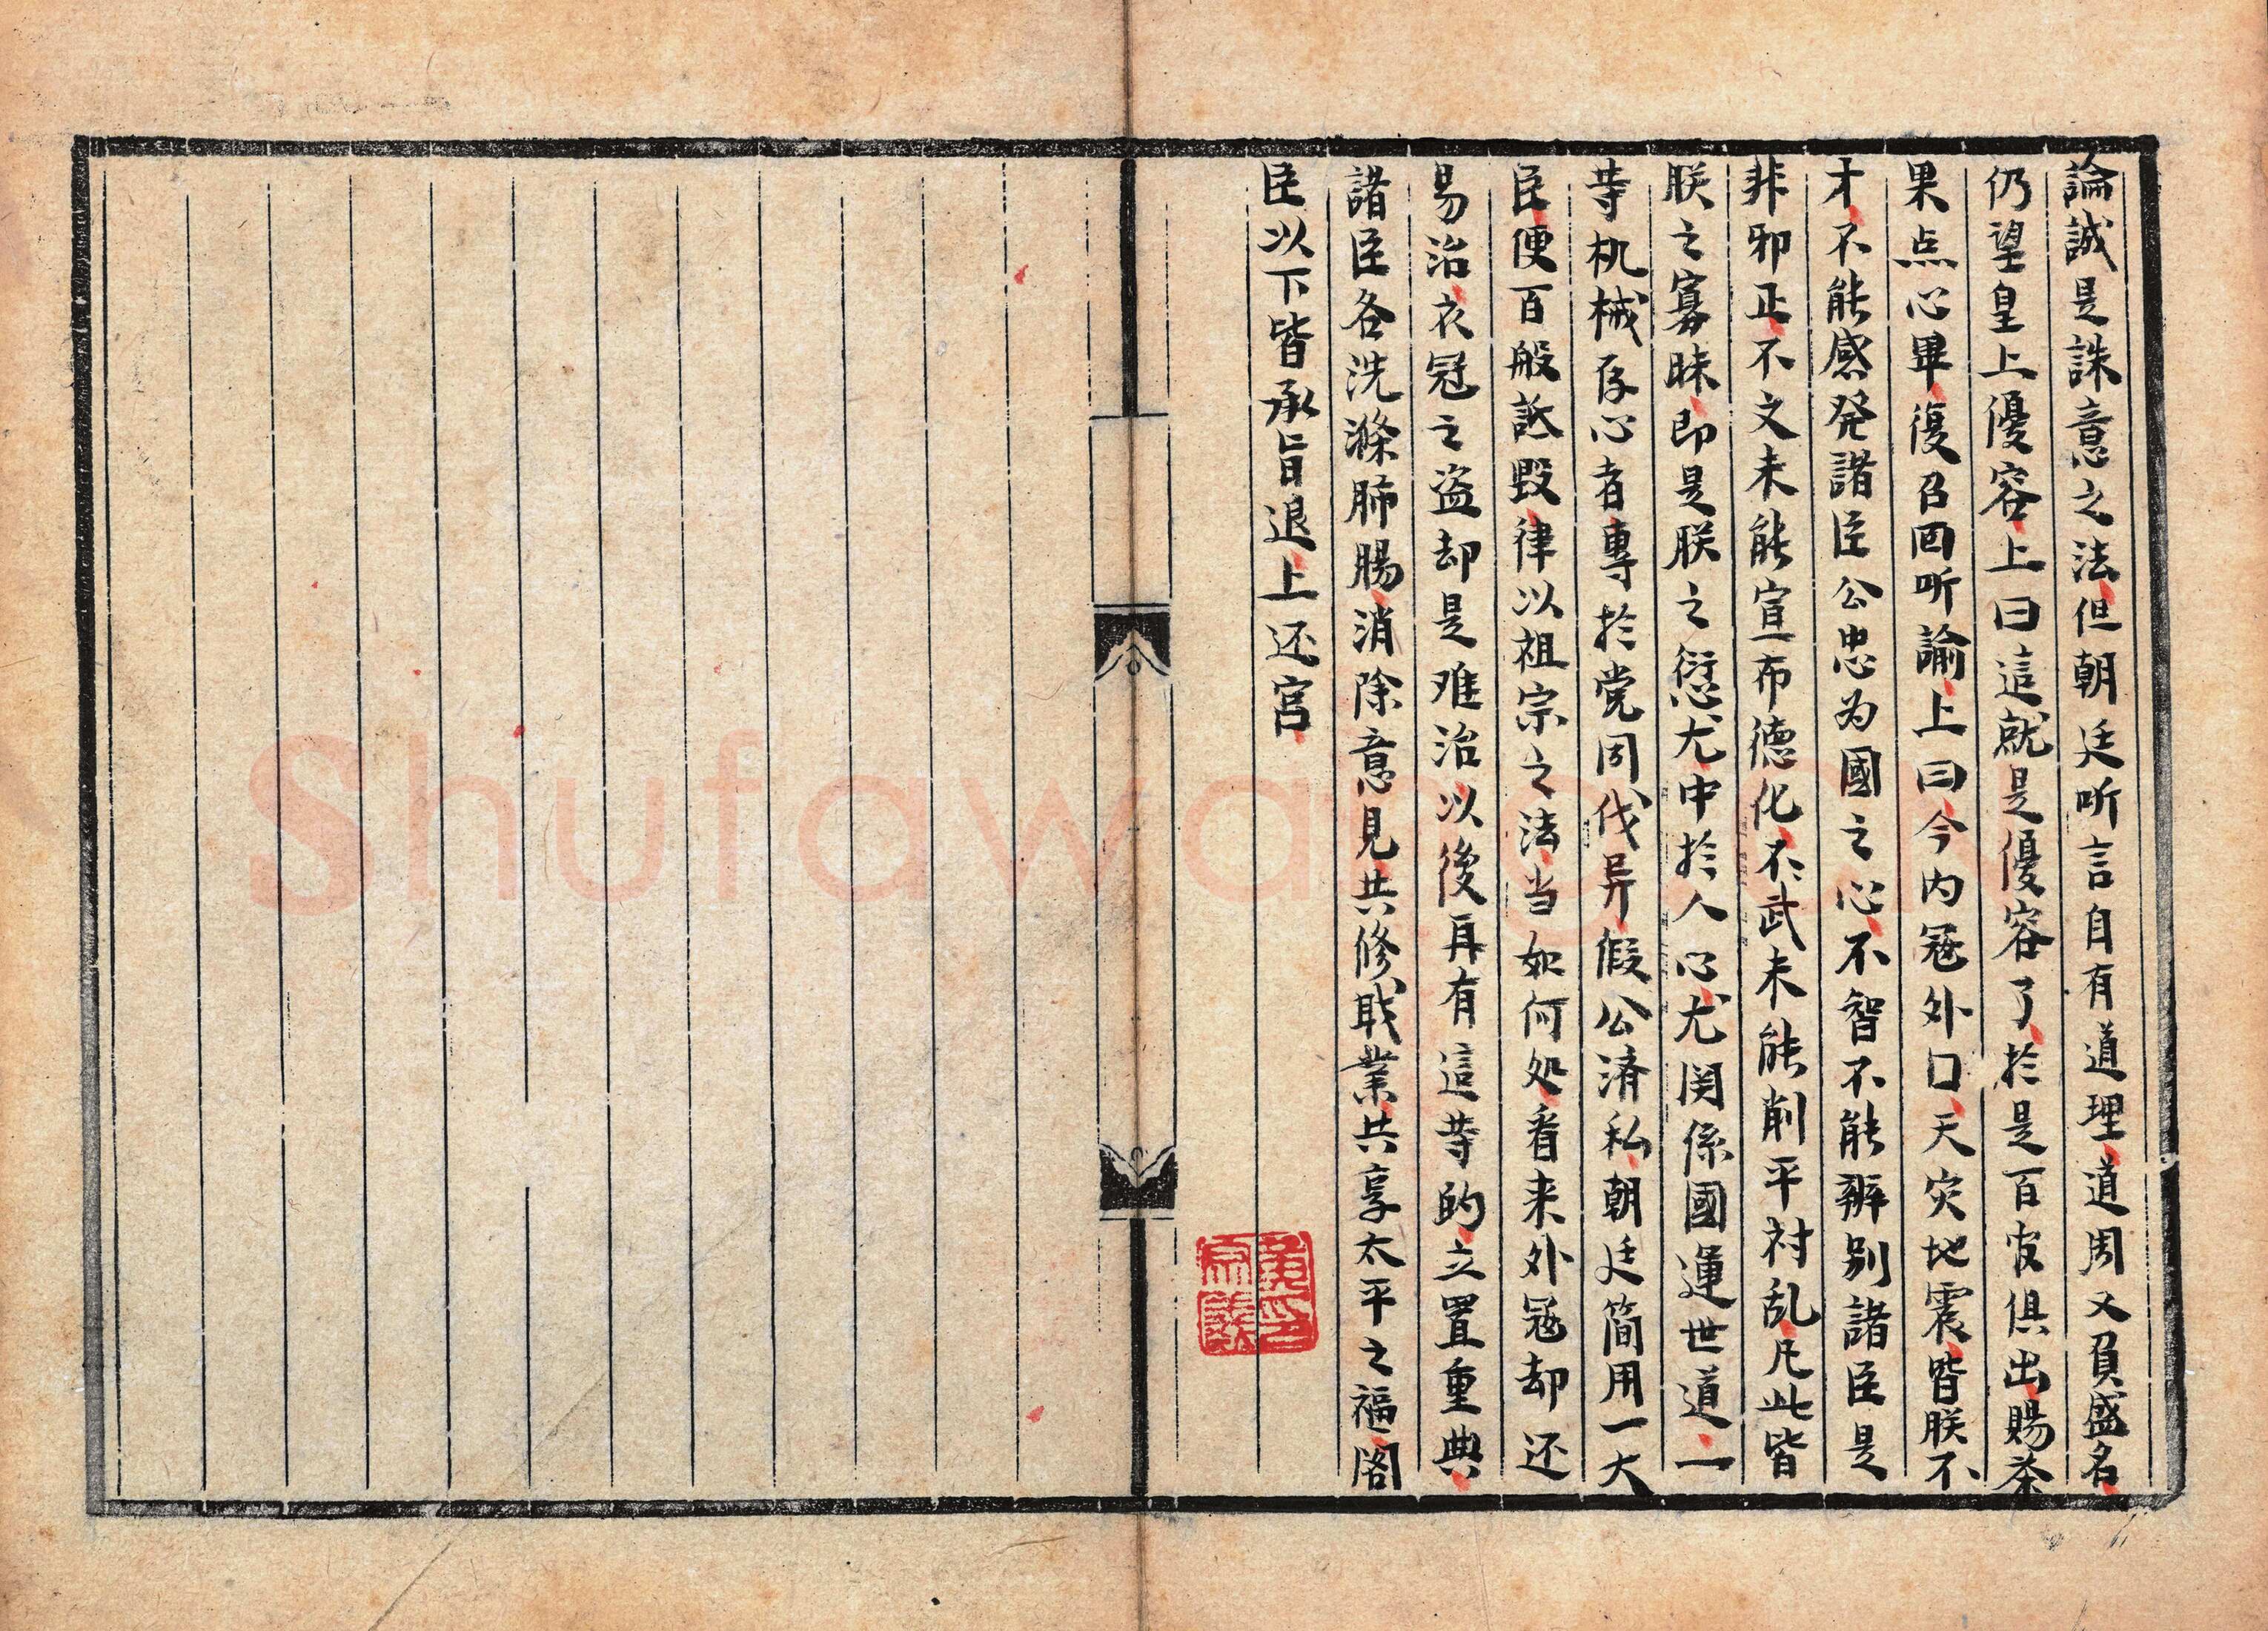 論誠是誅意之法但朝廷听言自有道理道周又負盛名
仍望皇上優容上曰這就是優容了於是百官俱出賜茶
果点心畢復召回听諭上曰今内寇外口天灾地震皆朕不
才不能感発諸臣公忠为國之心不智不能辨别諸臣是
非邪正不文未能宣布德化不武未能削平禍乱凡此皆
朕之寡昧即是朕之愆尤中於人心尤関係國運世道一
等机械存心者專於党同伐异假公済私朝廷简用一大
臣便百般詆毀律以祖宗之法当如何处看来外寇却还
易治衣冠之盗却是难治以後再有這等的立置重典
諸臣各洗滌肺腸消除意見共修職業共享太平之福閣
臣以下皆承旨退上还宫
Shufawa